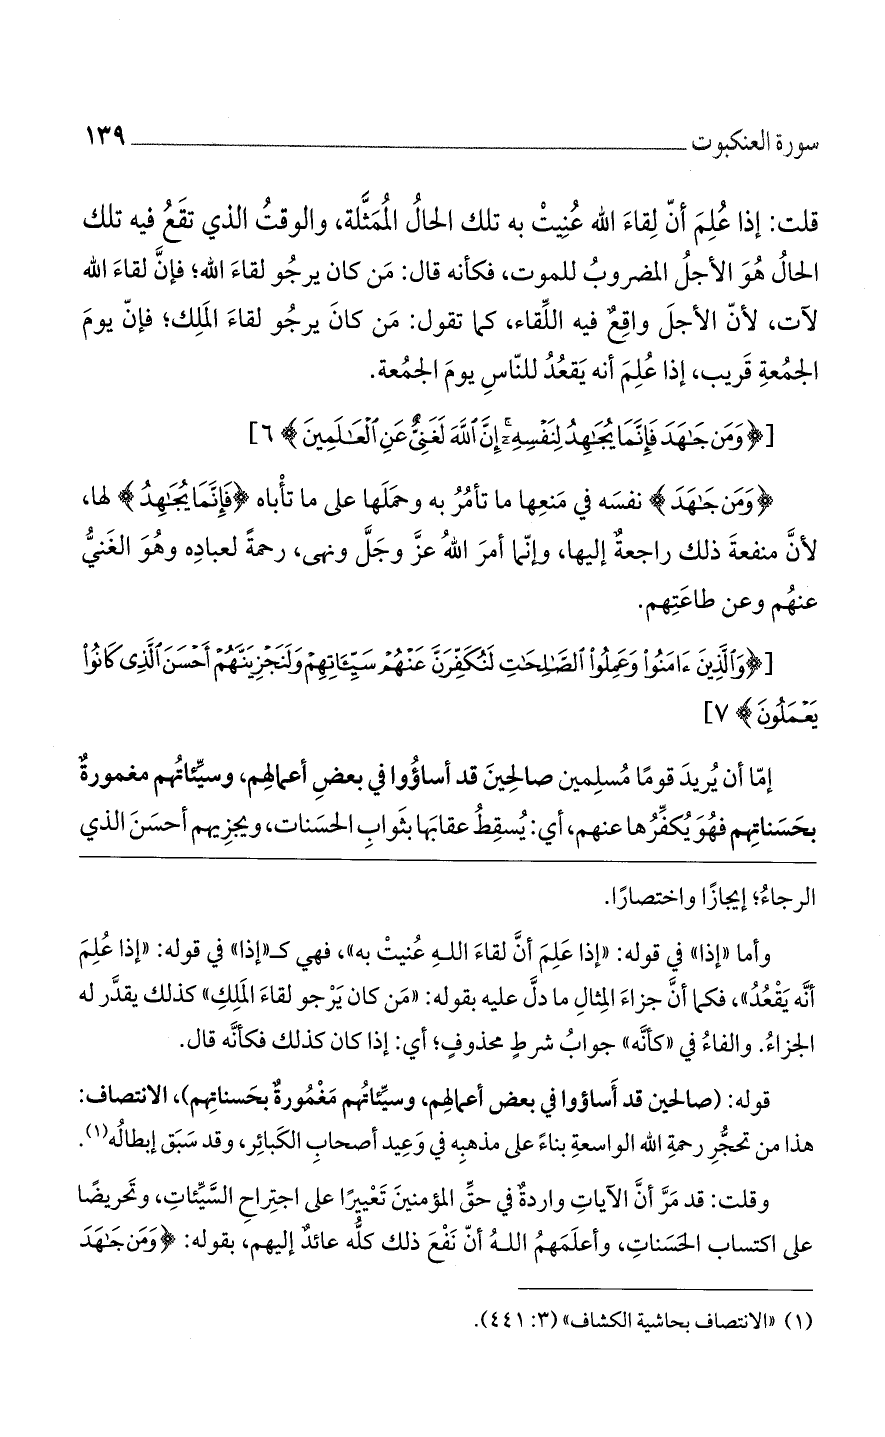 سورة العنكبوت ١٣٩
قلت: إذا عُلِمَ أنّ لِقاءَ الله عُنِيتْ به تلك الحالُ المُمَثَّلة، والوقتُ الذي تقَعُ فيه تلك
الحالُ هُوَ الأجلُ المضروبُ للموت، فكأنه قال: مَن كان يرجُو لقاءَ الله؛ فإنَّ لقاءَ الله
لآت، لأنّ الأجلَ واقِعٌ فيه اللِّقاء، كما تقول: مَن كانَ يرجُو لقاءَ المَلِك؛ فإنّ يومَ
الجمُعةِ قَريب، إذا عُلِمَ أنه يَقعُدُ للنّاسِ يومَ الجمُعة.
[﴿وَمَن جَٰهَدَ فَإِنَّمَا يُجَٰهِدُ لِنَفْسِهِۦٓ ۚ إِنَّ ٱللَّهَ لَغَنِىٌّ عَنِ ٱلْعَٰلَمِينَ﴾ ٦]
﴿وَمَن جَٰهَدَ﴾ نفسَه في مَنعِها ما تأمُرُ به وحمَلَها على ما تأْباه ﴿فَإِنَّمَا يُجَٰهِدُ﴾ لها،
لأنَّ منفعةَ ذلك راجعةٌ إليها، وإنّما أمرَ اللهُ عزَّ وجَلَّ ونهى، رحمةً لعبادِه وهُوَ الغَنيُّ
عنهُم وعن طاعَتِهم.
[﴿وَٱلَّذِينَ ءَامَنُوا۟ وَعَمِلُوا۟ ٱلصَّٰلِحَٰتِ لَنُكَفِّرَنَّ عَنْهُمْ سَيِّـَٔاتِهِمْ وَلَنَجْزِيَنَّهُمْ أَحْسَنَ ٱلَّذِى كَانُوا۟
يَعْمَلُونَ﴾ ٧]
إمّا أن يُريدَ قومًا مُسلِمين صالحِينَ قد أساؤُوا في بعضِ أعمالهِم، وسيِّئاتُهم مغمورةٌ
بحَسَناتِهم فهُوَ يُكفِّرُها عنهم، أي: يُسقِطُ عقابَها بثَوابِ الحسَنات، ويجزِيهم أحسَنَ الذي
الرجاءُ؛ إيجازًا واختصارًا.
وأما «إذا» في قوله: «إذا عَلِمَ أنَّ لقاءَ اللـهِ عُنيتْ به»، فهي كـ«إذا» في قوله: «إذا عُلِمَ
أنَّه يَقْعُدُ»، فكما أنَّ جزاءَ المِثالِ ما دلَّ عليه بقوله: «مَن كان يَرْجو لقاءَ المَلِكِ» كذلك يقدَّر له
الجزاءُ. والفاءُ في «كأنَّه» جوابُ شرطٍ محذوفٍ؛ أي: إذا كان كذلك فكأنَّه قال.
قوله: (صالحين قد أَساؤوا في بعض أعمالهِم، وسيِّئاتُهم مَغْمُورةٌ بحَسناتِهم)، الانتصاف:
هذا من تحجُّرِ رحمةِ الله الواسعةِ بناءً على مذهبِه في وَعِيد أصحابِ الكَبائِر، وقد سَبَق إبطالُه(١).
وقلت: قد مَرَّ أنَّ الآياتِ واردةٌ في حقِّ المؤمنينَ تَعْييرًا على اجتِراحِ السَّيِّئاتِ، وتَحريضًا
على اكتساب الحَسَناتِ، وأعلَمَهمُ اللـهُ أنّ نَفْعَ ذلك كلُّه عائدٌ إليهم، بقوله: ﴿وَمَن جَٰهَدَ
(١) «الانتصاف بحاشية الكشاف» (٣: ٤٤١).